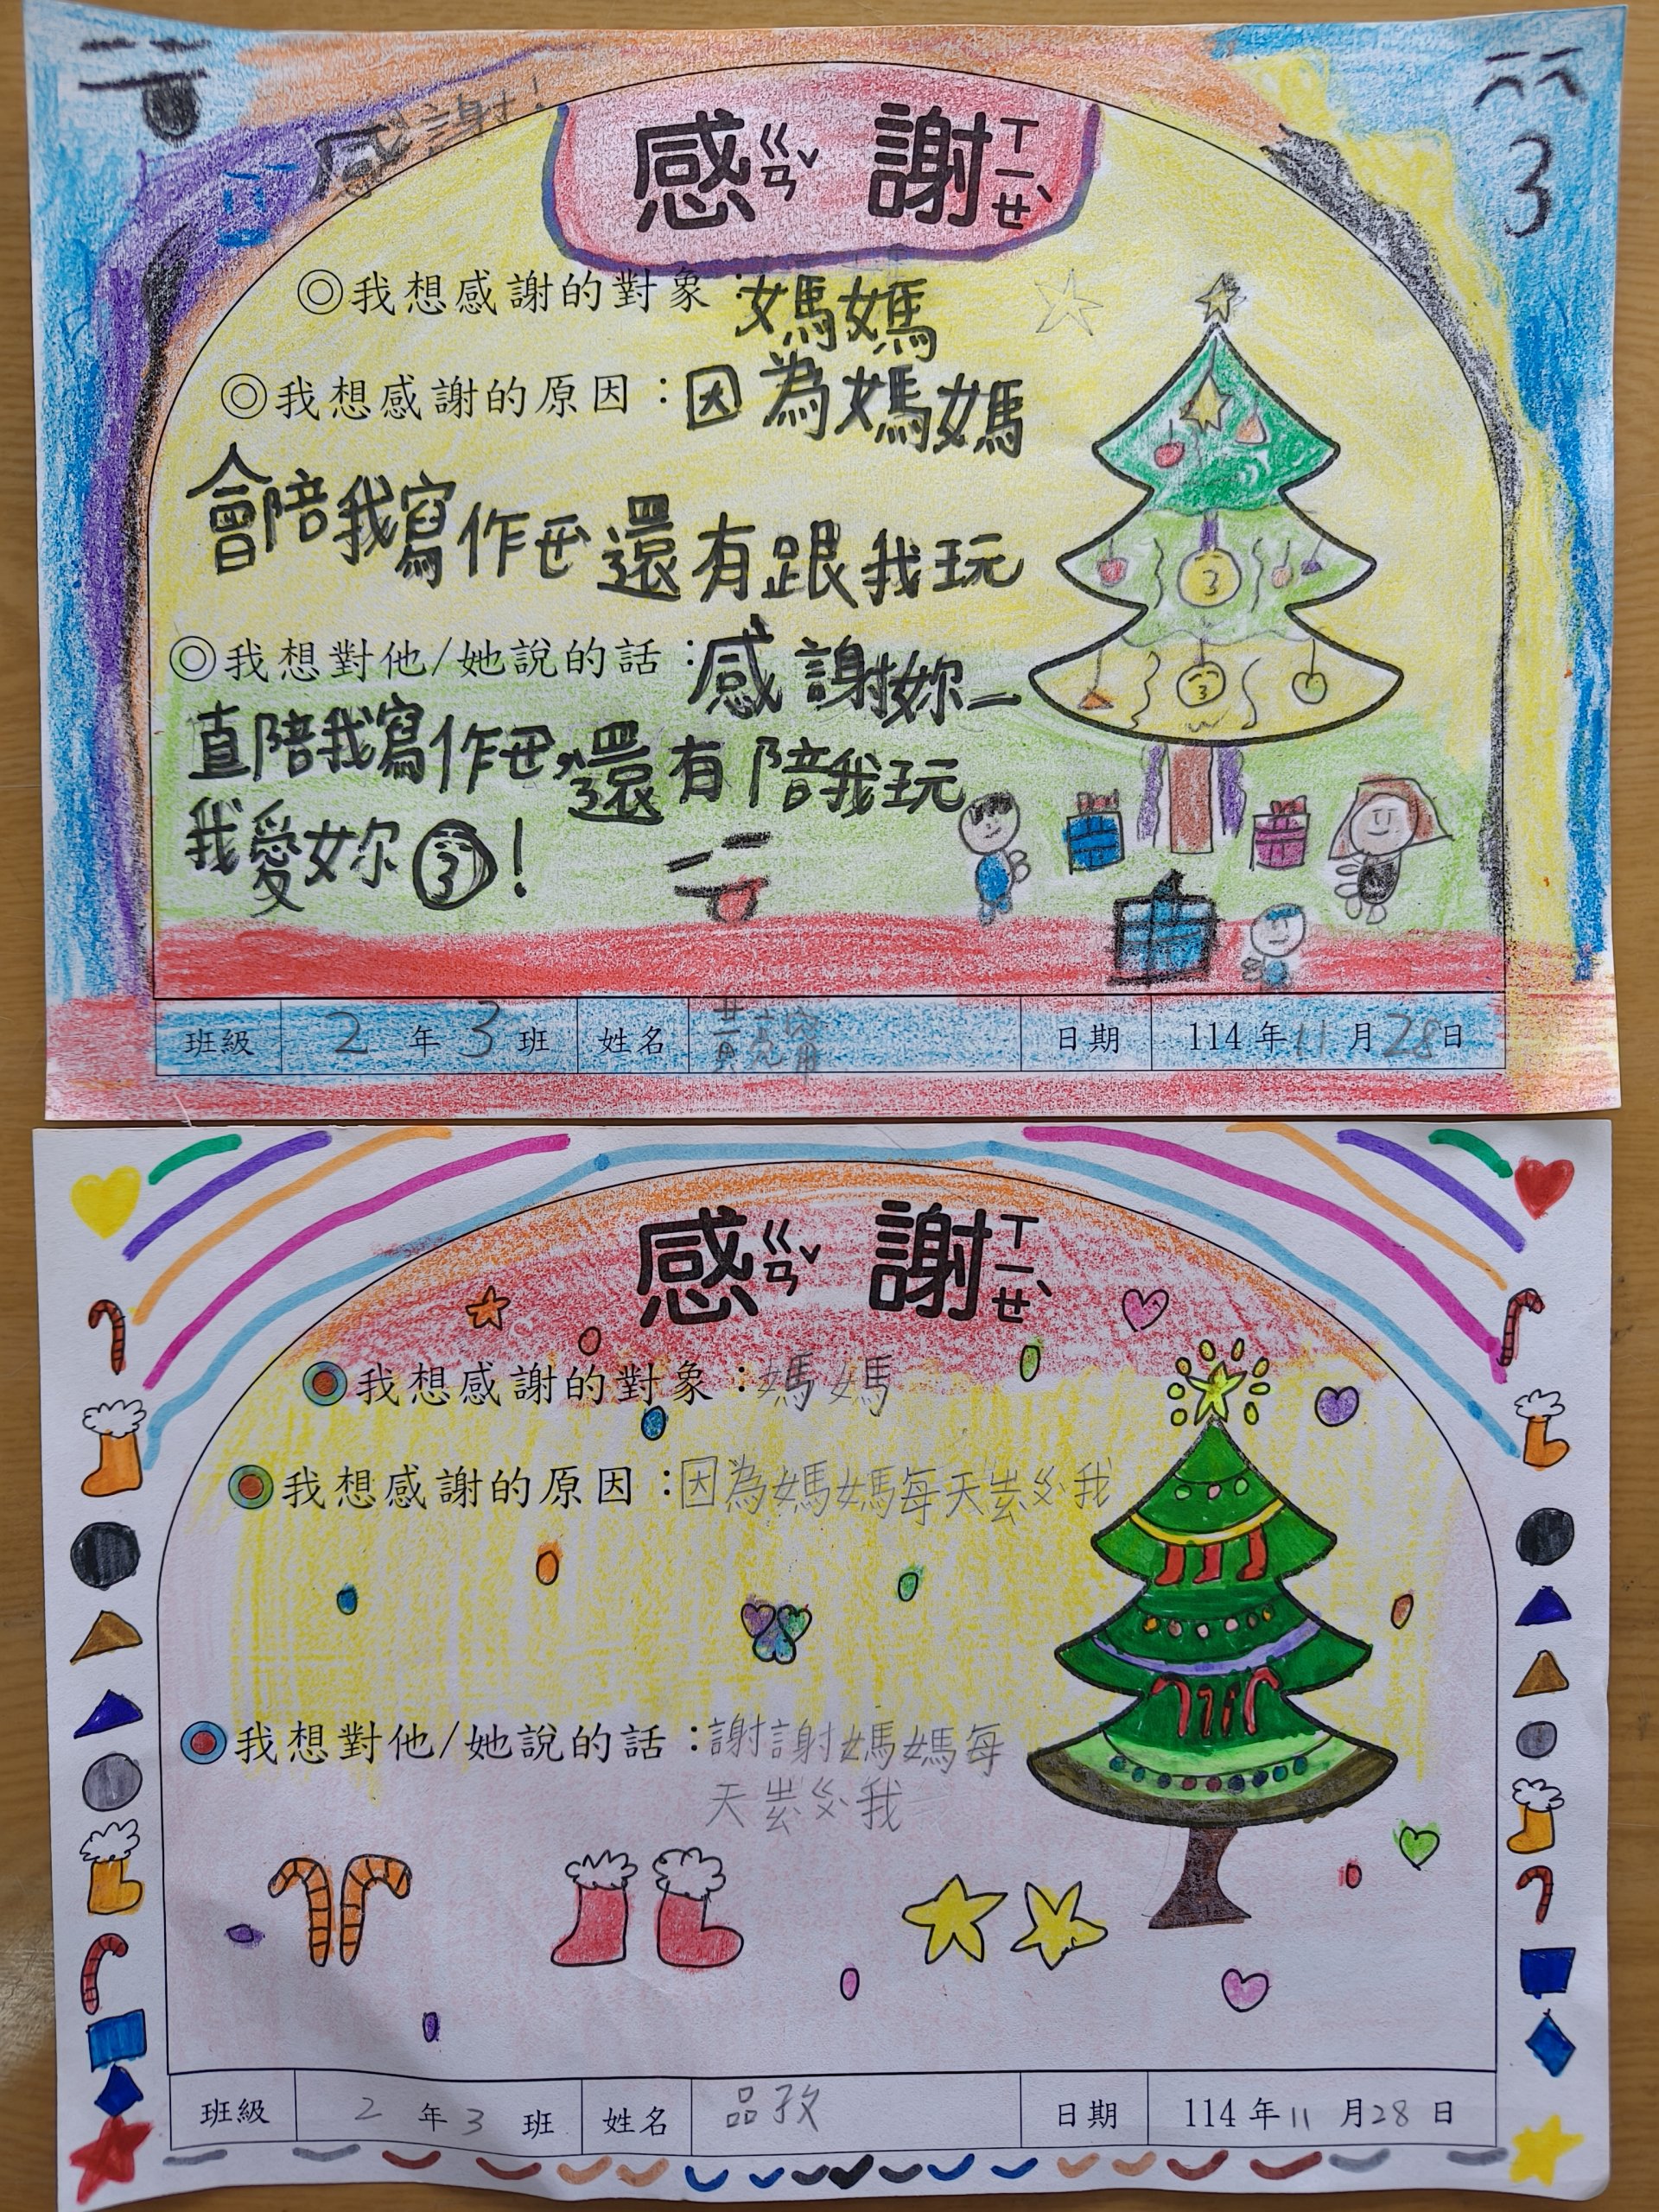 感謝!
感ㄍㄢˇ 謝ㄒㄧㄝˋ
3
◎我想感謝的對象:媽媽
◎我想感謝的原因:因為媽媽
會陪我寫作ㄝ還有跟我玩
3
◎我想對他/她說的話:感謝妳一
3
直陪我寫作ㄝ還有陪我玩
我愛妳3!
班級 2年3班 姓名 黃 日期 114年11月28日
感ㄍㄢˇ 謝ㄒㄧㄝˋ
我想感謝的對象:媽媽
我想感謝的原因:因為媽媽每天 我
我想對他/她說的話:謝謝媽媽每
天 我
班級 2年3班 姓名 品孜 日期 114年11月28日